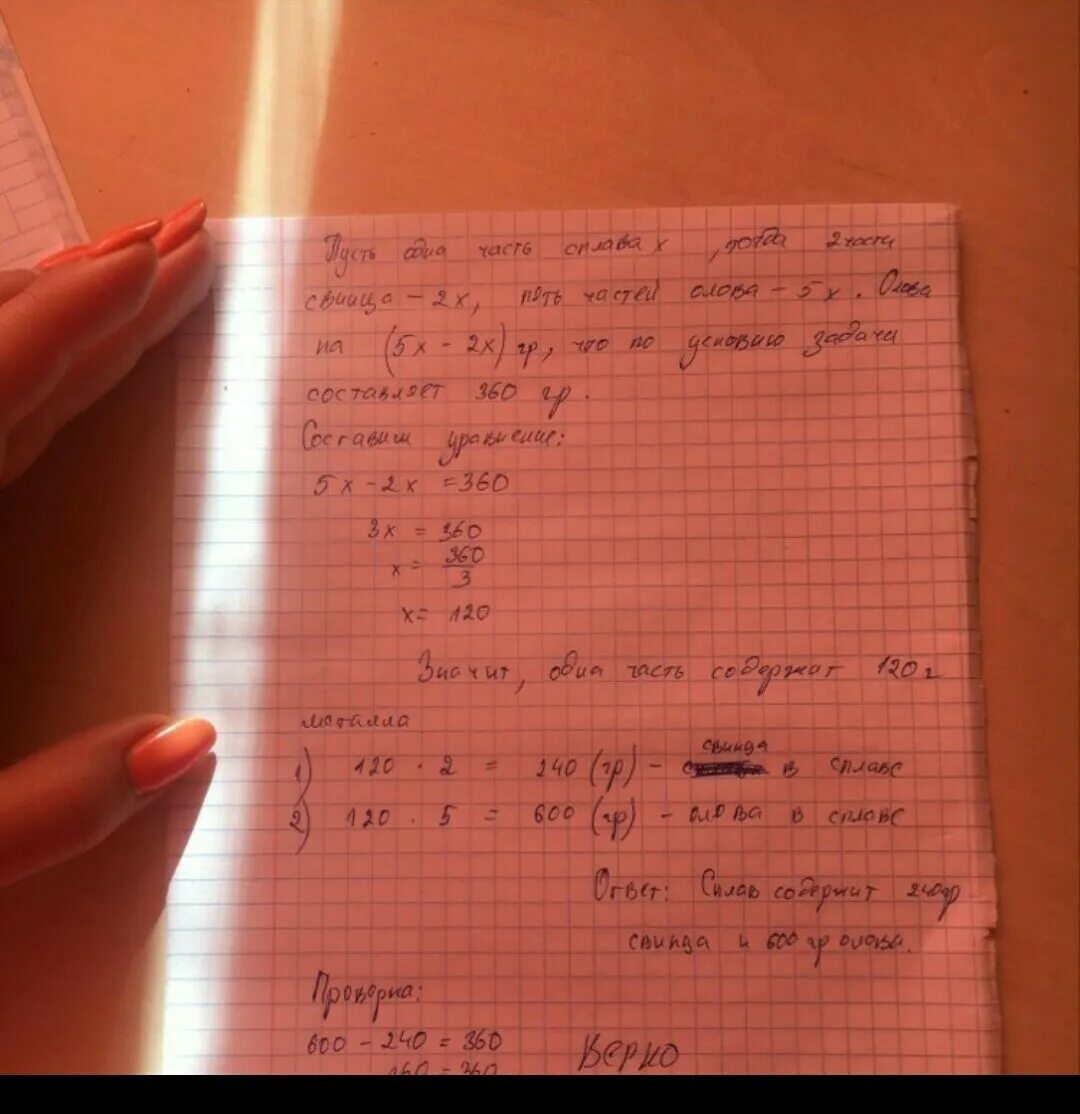 Пусть одна часть сплава х , тогда 2 части
свинца – 2х, пять частей олова – 5х. Олова
на (5х – 2х) гр, что по условию задачи
составляет 360 гр.
Составим уравнение:
5х – 2х = 360
3х = 360
х = 360/3
х = 120
Значит, одна часть содержит 120 г
металла
1) 120 · 2 = 240 (гр) – свинца в сплаве
2) 120 · 5 = 600 (гр) – олова в сплаве
Ответ: Сплав содержит 240 гр
свинца и 600 гр олова.
Проверка:
600 – 240 = 360
Верно
360 = 360